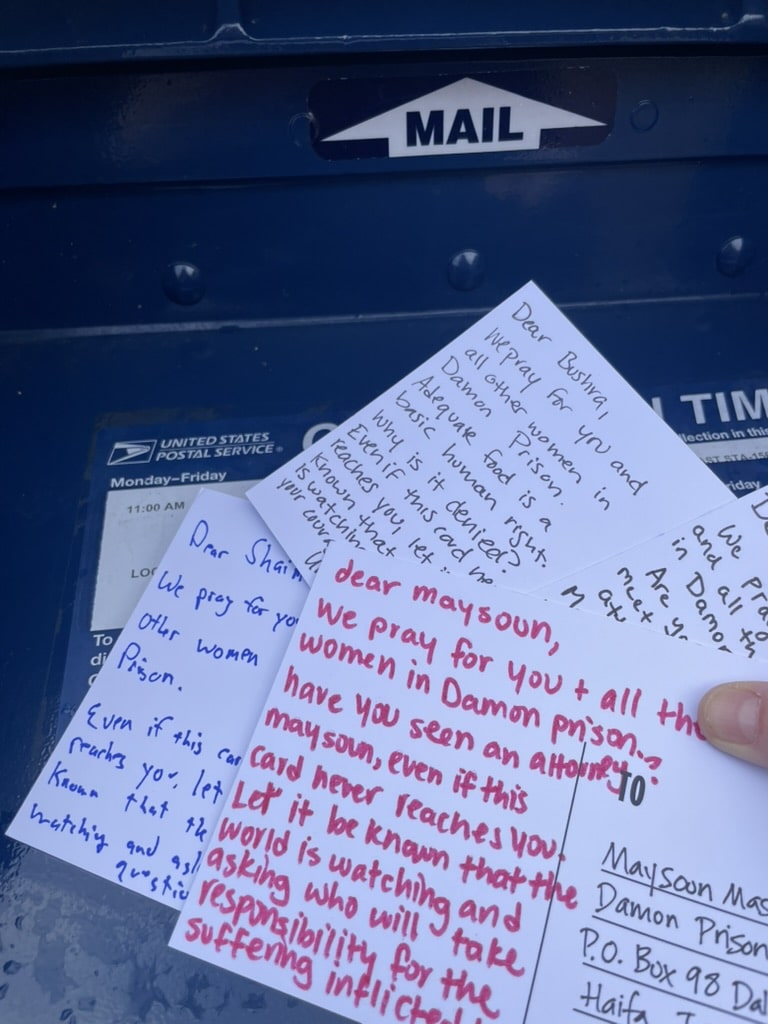 MAIL
UNITED STATES
POSTAL SERVICE
Monday–Friday
11:00 AM
TIM
collection in this
Dear Bushra,
We pray for you and
all other women in
Damon Prison.
Adequate food is a
basic human right.
Why is it denied?
Even if this card ne
reaches you, let
known that
is watchin
your cour
Dear Shaim
We pray for yo
other women
Prison.
Even if this car
reaches you, let
known that the
watching and ask
questio
We pra
and
in Damo
all th
Are y
meet y
dear maysoun,
We pray for you + all the
women in Damon prison.
have you seen an attorney?
maysoun, even if this
card never reaches you.
Let it be known that the
world is watching and
asking who will take
responsibility for the
suffering inflicted
TO
Maysoun Mas
Damon Prison
P.O. Box 98 Dal
Haifa